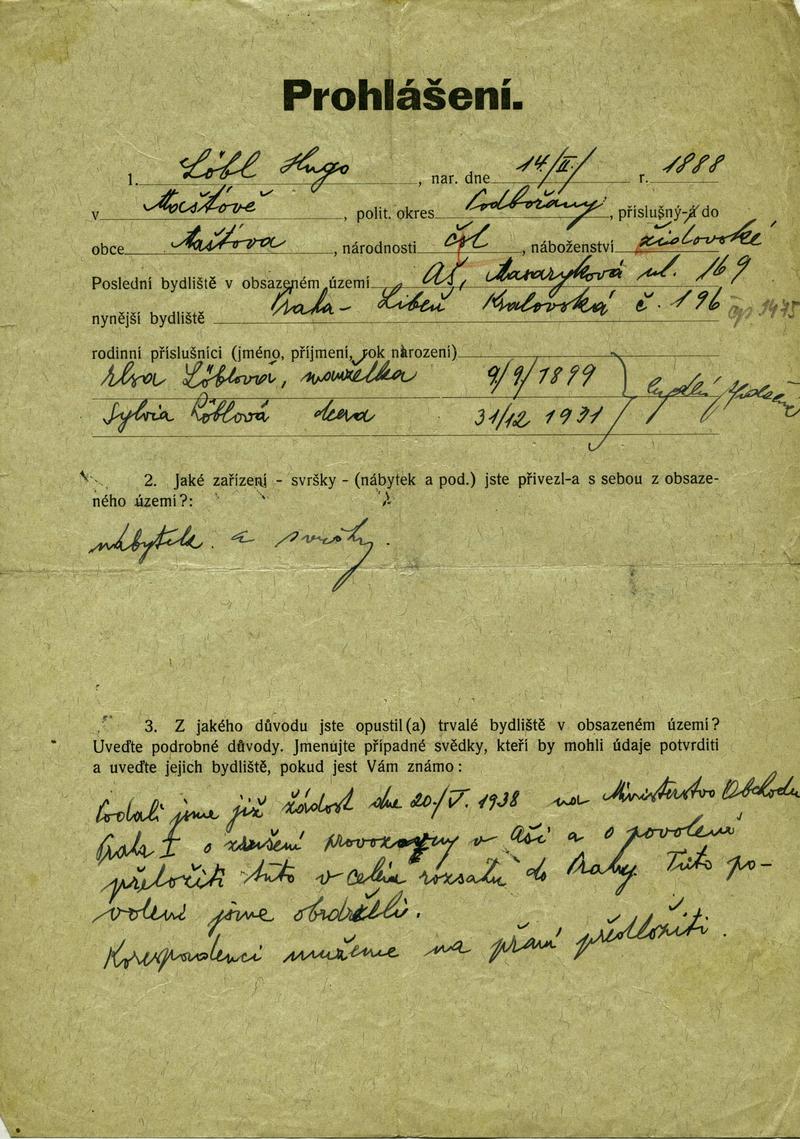 Prohlášení.
1. Löbl Hugo, nar. dne 14/II/ r. 1888
v Mašťově, polit. okres Podbořany, příslušný-á do
obce Mašťova, národnosti čsl, náboženství židovské
Poslední bydliště v obsazeném území Aš, Masaryková ul. 169
nynější bydliště Praha - Libeň Kralovská č. 196 čp 1475
rodinní příslušníci (jméno, příjmení, rok narození)
Elsa Löblová, manželka 9/9/1899
Sylvia Löblová dcera 31/12 1931 bydlí společně
2. Jaké zařízení - svršky - (nábytek a pod.) jste přivezl-a s sebou z obsaze-
ného území?:
nábytek a svršky.
3. Z jakého důvodu jste opustil(a) trvalé bydliště v obsazeném území?
Uveďte podrobné důvody. Jmenujte případné svědky, kteří by mohli údaje potvrditi
a uveďte jejich bydliště, pokud jest Vám známo:
Podali jsme již žádost dne 20/V. 1938 na Ministerstvo Obchodu
Praha I o zrušení provozovny v Aši a o povolení
přeložiti tuto v celém rozsahu do Prahy. Toto po-
volení jsme obdrželi.
Korespondenci mužeme na přaní předložiti.